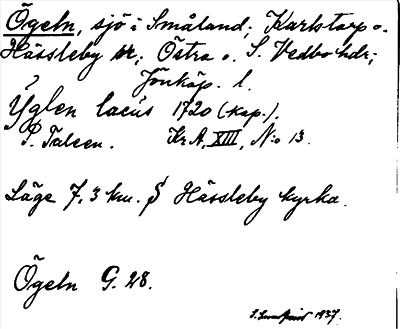 Ögeln, sjö i Småland; Karlstorp o.
Hässleby sn, Östra o. S. Vedbo hdr;
Jönköp. l.
Yglen lacus 1720 (kop.).
P. Taleen. Kr A, XIII, N:o 13.
Läge 7,3 km. S Hässleby kyrka.
Ögeln G. 28.
1937.